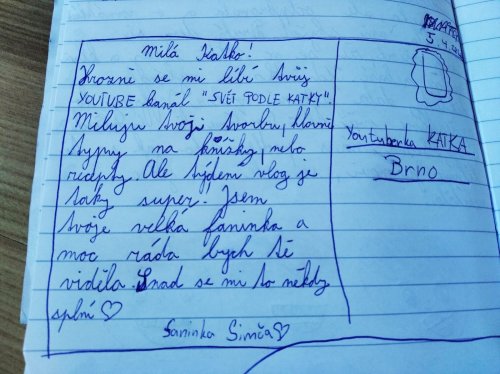 Milá Katko!
Hrozně se mi líbí tvůj
YOUTUBE kanál "SVĚT PODLE KATKY".
Miluju tvoji tvorbu, hlavně
typy na knížky, nebo
recepty. Ale týden vlog je
taky super. Jsem
tvoje velká faninka a
moc ráda bych tě
viděla. Snad se mi to někdy
splní ♡
Faninka Simča ♡
5.4.
Youtuberka KATKA
Brno